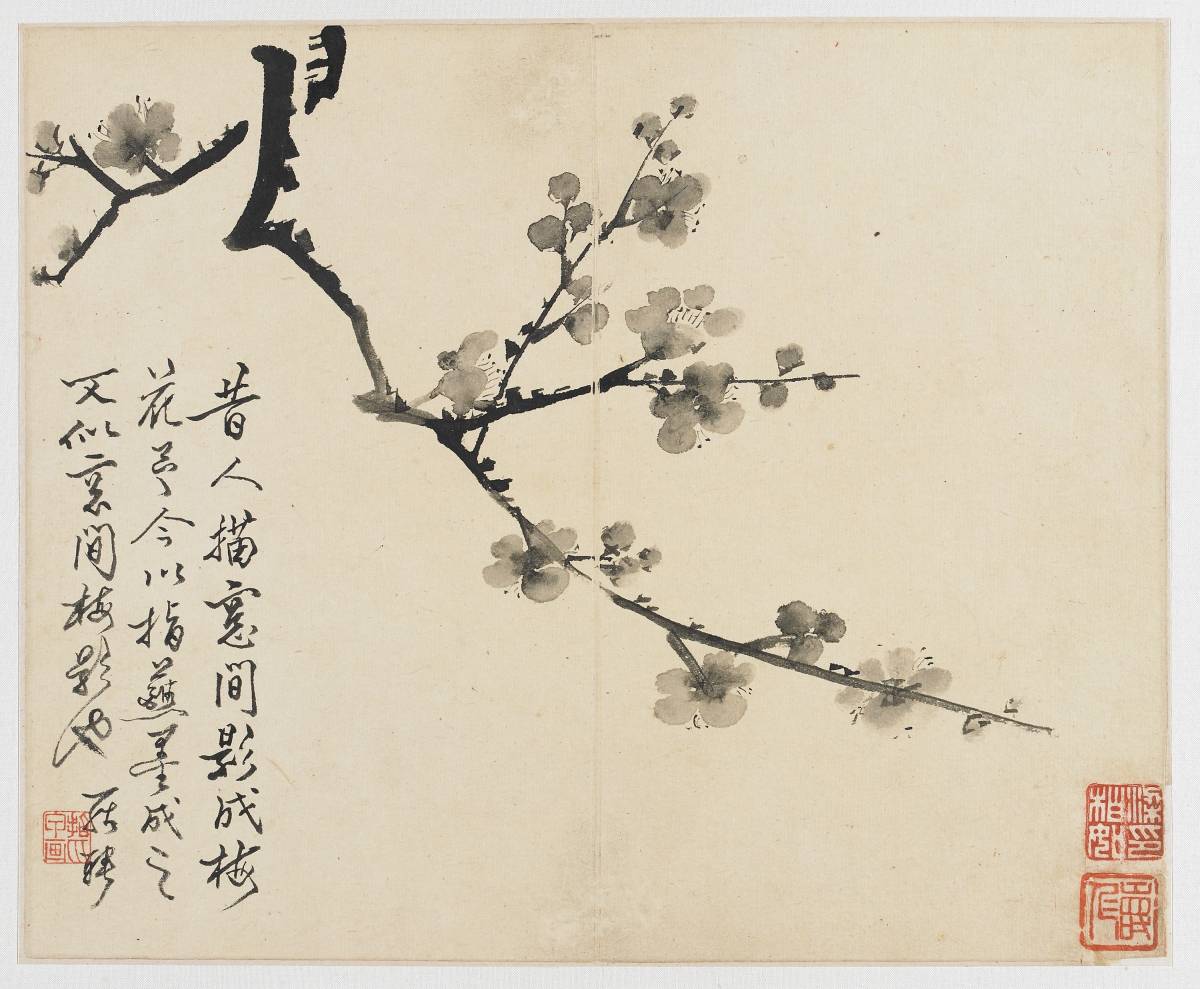 昔人描窓間影成梅
花予今以指蘸墨成之
又似窓間梅影也